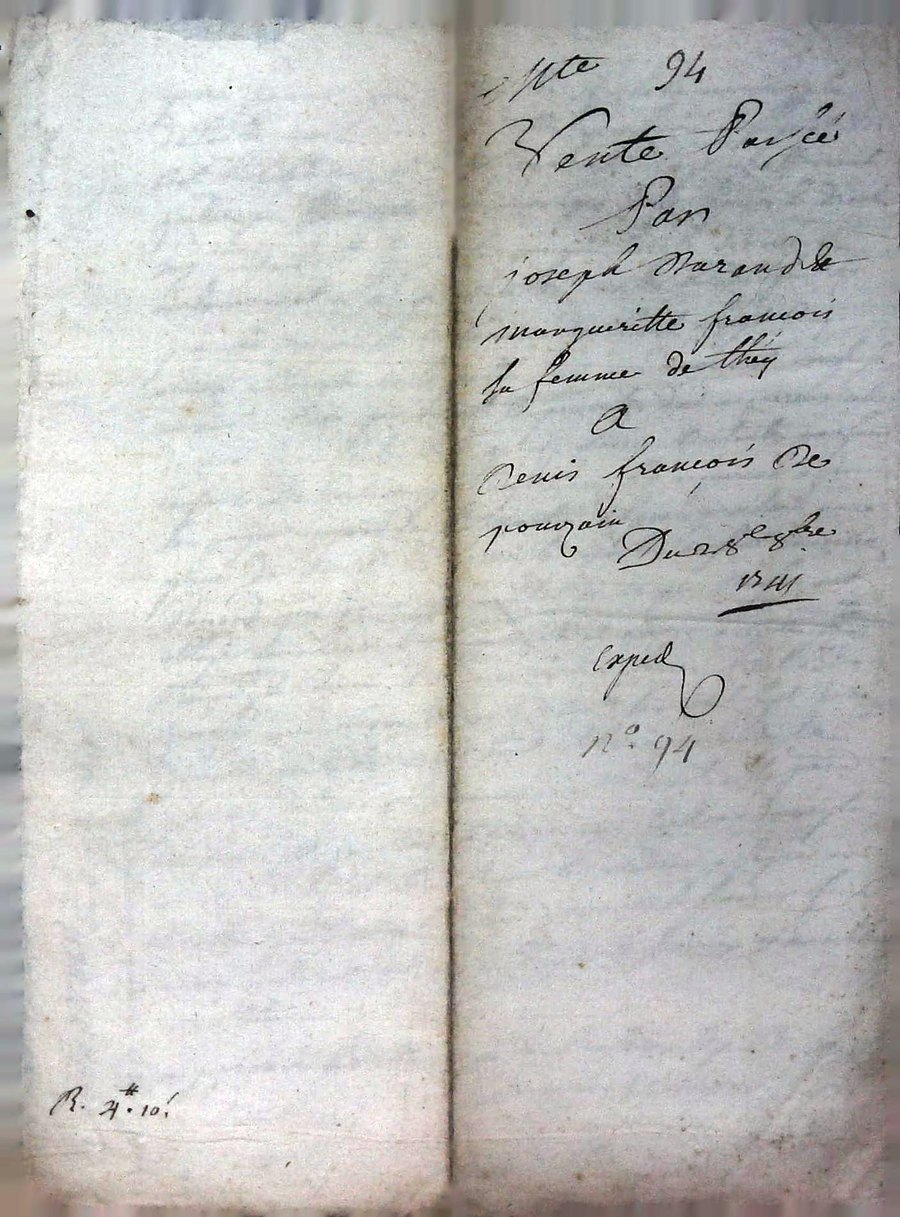 94
Vente Passéé
Par
joseph Marande &
margueritte francois
sa femme de théÿ
A
Denis françois De
pouzain
Du
1741
Exped
n°. 94
R. 4#. 10ˢ